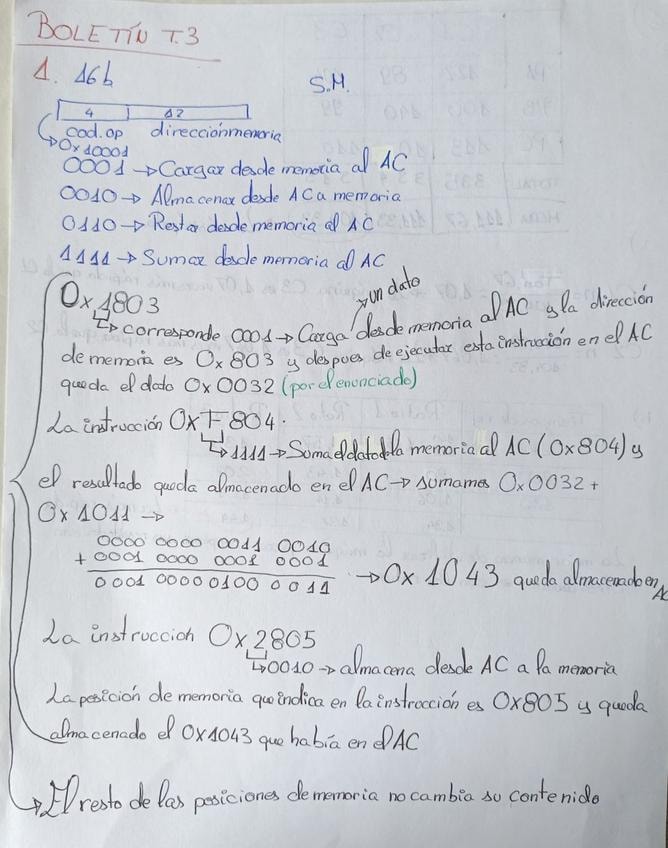 BOLETÍN T.3
1. 16b
S.M.
4 12
cod.op direcciónmemoria
0x10001
0001 → Cargar desde memoria al AC
0010 → Almacenar desde AC a memoria
0110 → Restar desde memoria al AC
1111 → Sumar desde memoria al AC
un dato
0x1803
corresponde 0001 → Carga desde memoria al AC y la dirección
de memoria es 0x803 y despues de ejecutar esta instrucción en el AC
queda el dato 0x0032 (por el enunciado)
La instrucción 0xF804.
1111 → Suma el dato de la memoria al AC (0x804) y
el resultado queda almacenado en el AC → sumamos 0x0032 +
0x1011 →
0000 0000 0011 0010
+ 0001 0000 0001 0001
0001 0000 0100 0011 → 0x1043 queda almacenado en AC
La instruccion 0x2805
0010 → almacena desde AC a la memoria
La posición de memoria que indica en la instrucción es 0x805 y queda
almacenado el 0x1043 que había en el AC
→ El resto de las posiciones de memoria no cambia su contenido